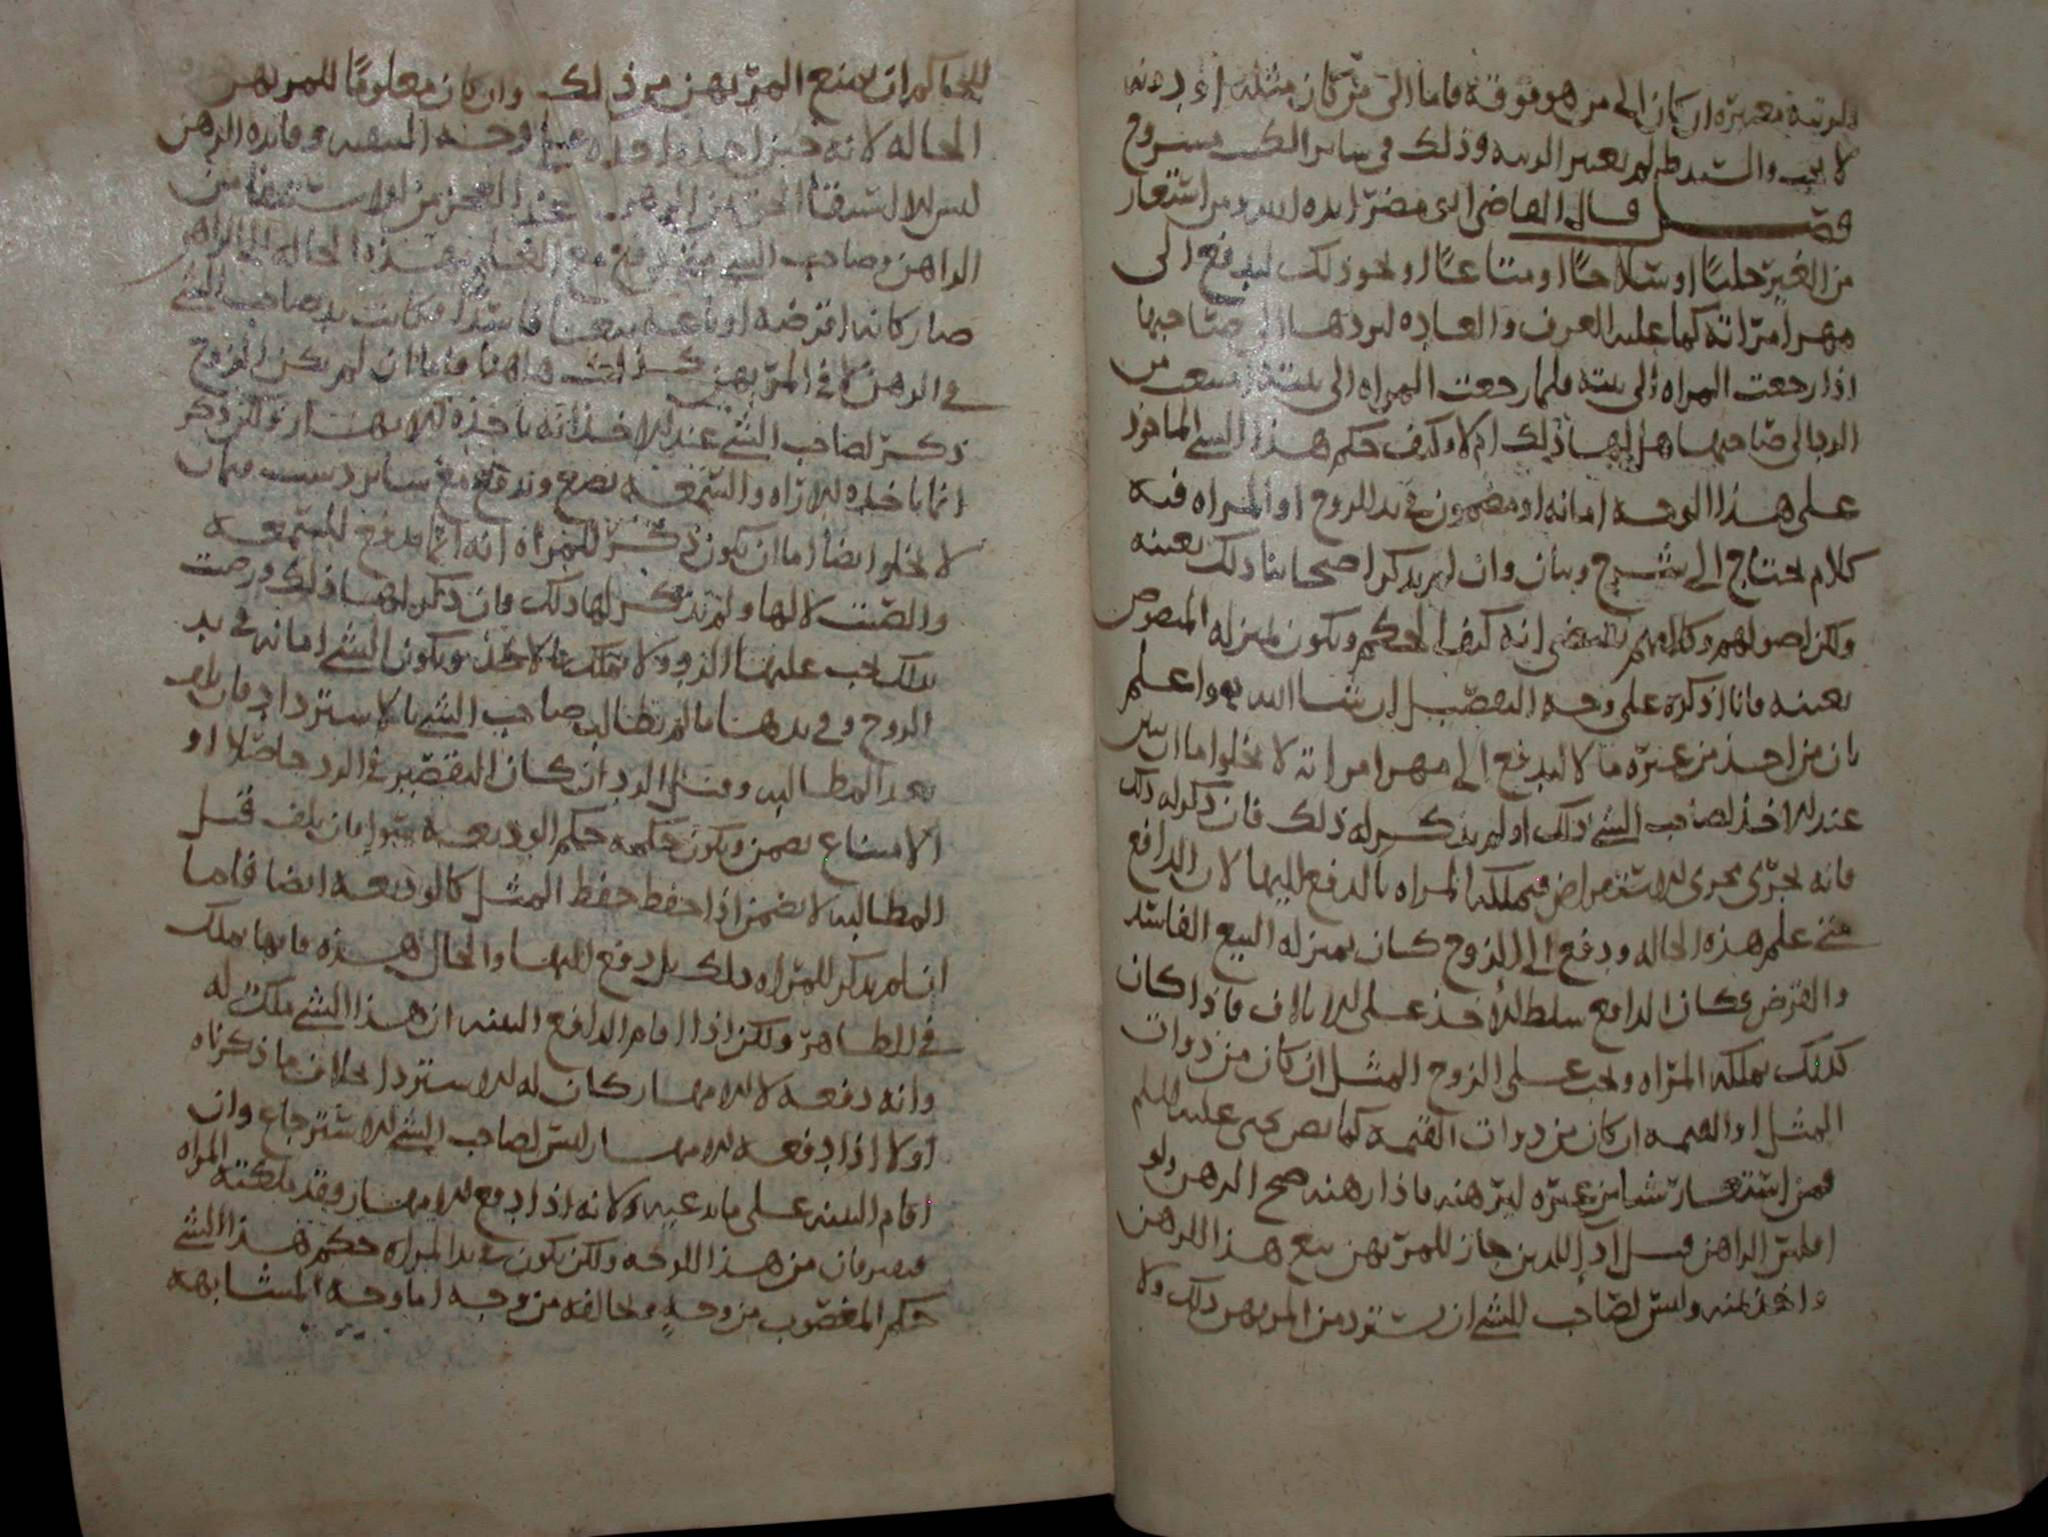 والرتبة معتبرة ان كان الى من هو فوقه فاما الى من كان مثله او دونه
لا يجب والشرط لم يعتبر الرتبة وذلك في ساير الكتب مشروح
فصل قال القاضي ابو مضر ايده الله ومن استعار
من الغير حليا او سلاحا او متاعا او نحو ذلك ليدفع الى
مهر امراته كما عليه العرف والعاده ليردها الى صاحبها
اذا رجعت المراه الى بيته فلما رجعت المراه الى بيته امتنعت من
الرد الى صاحبها هل لها ذلك ام لا وكيف حكم هذا الشي الماخوذ
على هذا الوجه امانه او مضمون في يد الزوج او المراه فيه
كلام يحتاج الى شرح وبيان وان لم يذكر اصحابنا ذلك بعينه
ولكن اصولهم وكلامهم يقتضي انه كيف الحكم ويكون بمنزله المنصوص
بعينه وانا اذكره على وجه التفصيل ان شا الله واعلم
بان من اخذ من غيره مالا ليدفع الى مهر امراته لا يخلوا اما ان يبين
عند الاخذ لصاحب الشي ذلك او لم يذكر له ذلك فان ذكر له ذلك
فانه يجري مجرى الاستقراض فتملكه المراه بالدفع اليها لان الدافع
متى علم هذه الحاله ودفع الى الزوج كان بمنزله البيع الفاسد
والقرض وكان الدافع سلط الاخذ على الاتلاف فاذا كان
كذلك تملكه المراه ويجب على الزوج المثل ان كان من ذوات
المثل او القيمه ان كان من ذوات القيمه كما نص يحيى عليه السلم
فمن استعار شيا من غيره ليرهنه فاذا رهنه صح الرهن ولو
افلس الراهن قبل اد الدين جاز للمرتهن بيع هذا الرهن
واخذ ثمنه وليس لصاحب الشي ان يسترد من المرتهن ذلك ولا
للحاكم ان يمنع المرتهن من ذلك وان كان معلوما للمرتهن
الحاله لانه حين اخذه اخذه على وجه وفايده الرهن
ليس الا استيفا الحق من الرهن عند العجز من الاستيفا من
الراهن وصاحب الشي متى دفع مع العلم بهذه الحاله الى الراهن
صار كانه اقرضه او باعه بيعا فاسدا فكانت يد صاحب الشي
في الرهن لا في المرتهن كذلك هاهنا فاما ان لم يكن الزوج
ذكر لصاحب الشي عند الاخذ انه ياخذه للامهار ولكن ذكر
انما ياخذه للاراه والسمعه يضع ويدفع مع ساير
لا يخلو ايضا اما ان يكون ذكر للمراه انه انما يدفع للسمعه
والصيت لا لها ولم يذكر لها ذلك فان ذكر لها ذلك ورضيت
بذلك يجب عليها الرد ولا تملك بالاخذ ويكون الشي امانه في يد
الزوج وفي يدها ما لم يطالب صاحب الشي بالاسترداد فان تلف
بعد المطالبه وقبل الرد ان كان التقصير في الرد حاصلا او
الامتناع يضمن ويكون حكمه حكم الوديعه سوا فان تلف قبل
المطالبه لا يضمن اذا حفظ حفظ المثل كالوديعه ايضا فاما
ان لم يذكر للمراه ذلك بل دفع اليها والحال هذه فانها تملك
في الظاهر ولكن اذا اقام الدافع البينه ان هذا الشي ملك له
وانه دفعه لا للامهار كان له الاسترداد بخلاف ما ذكرناه
اولا اذا دفعه للامهار ليس لصاحب الشي الاسترجاع وان
اقام البينه على ما يدعيه لانه اذا دفع للامهار وقد ملكته المراه
فيفترقان من هذا الوجه ولكن يكون في يد المراه حكم هذا الشي
حكم المغصوب من وجه ويخالفه من وجه اما وجه المشابهه